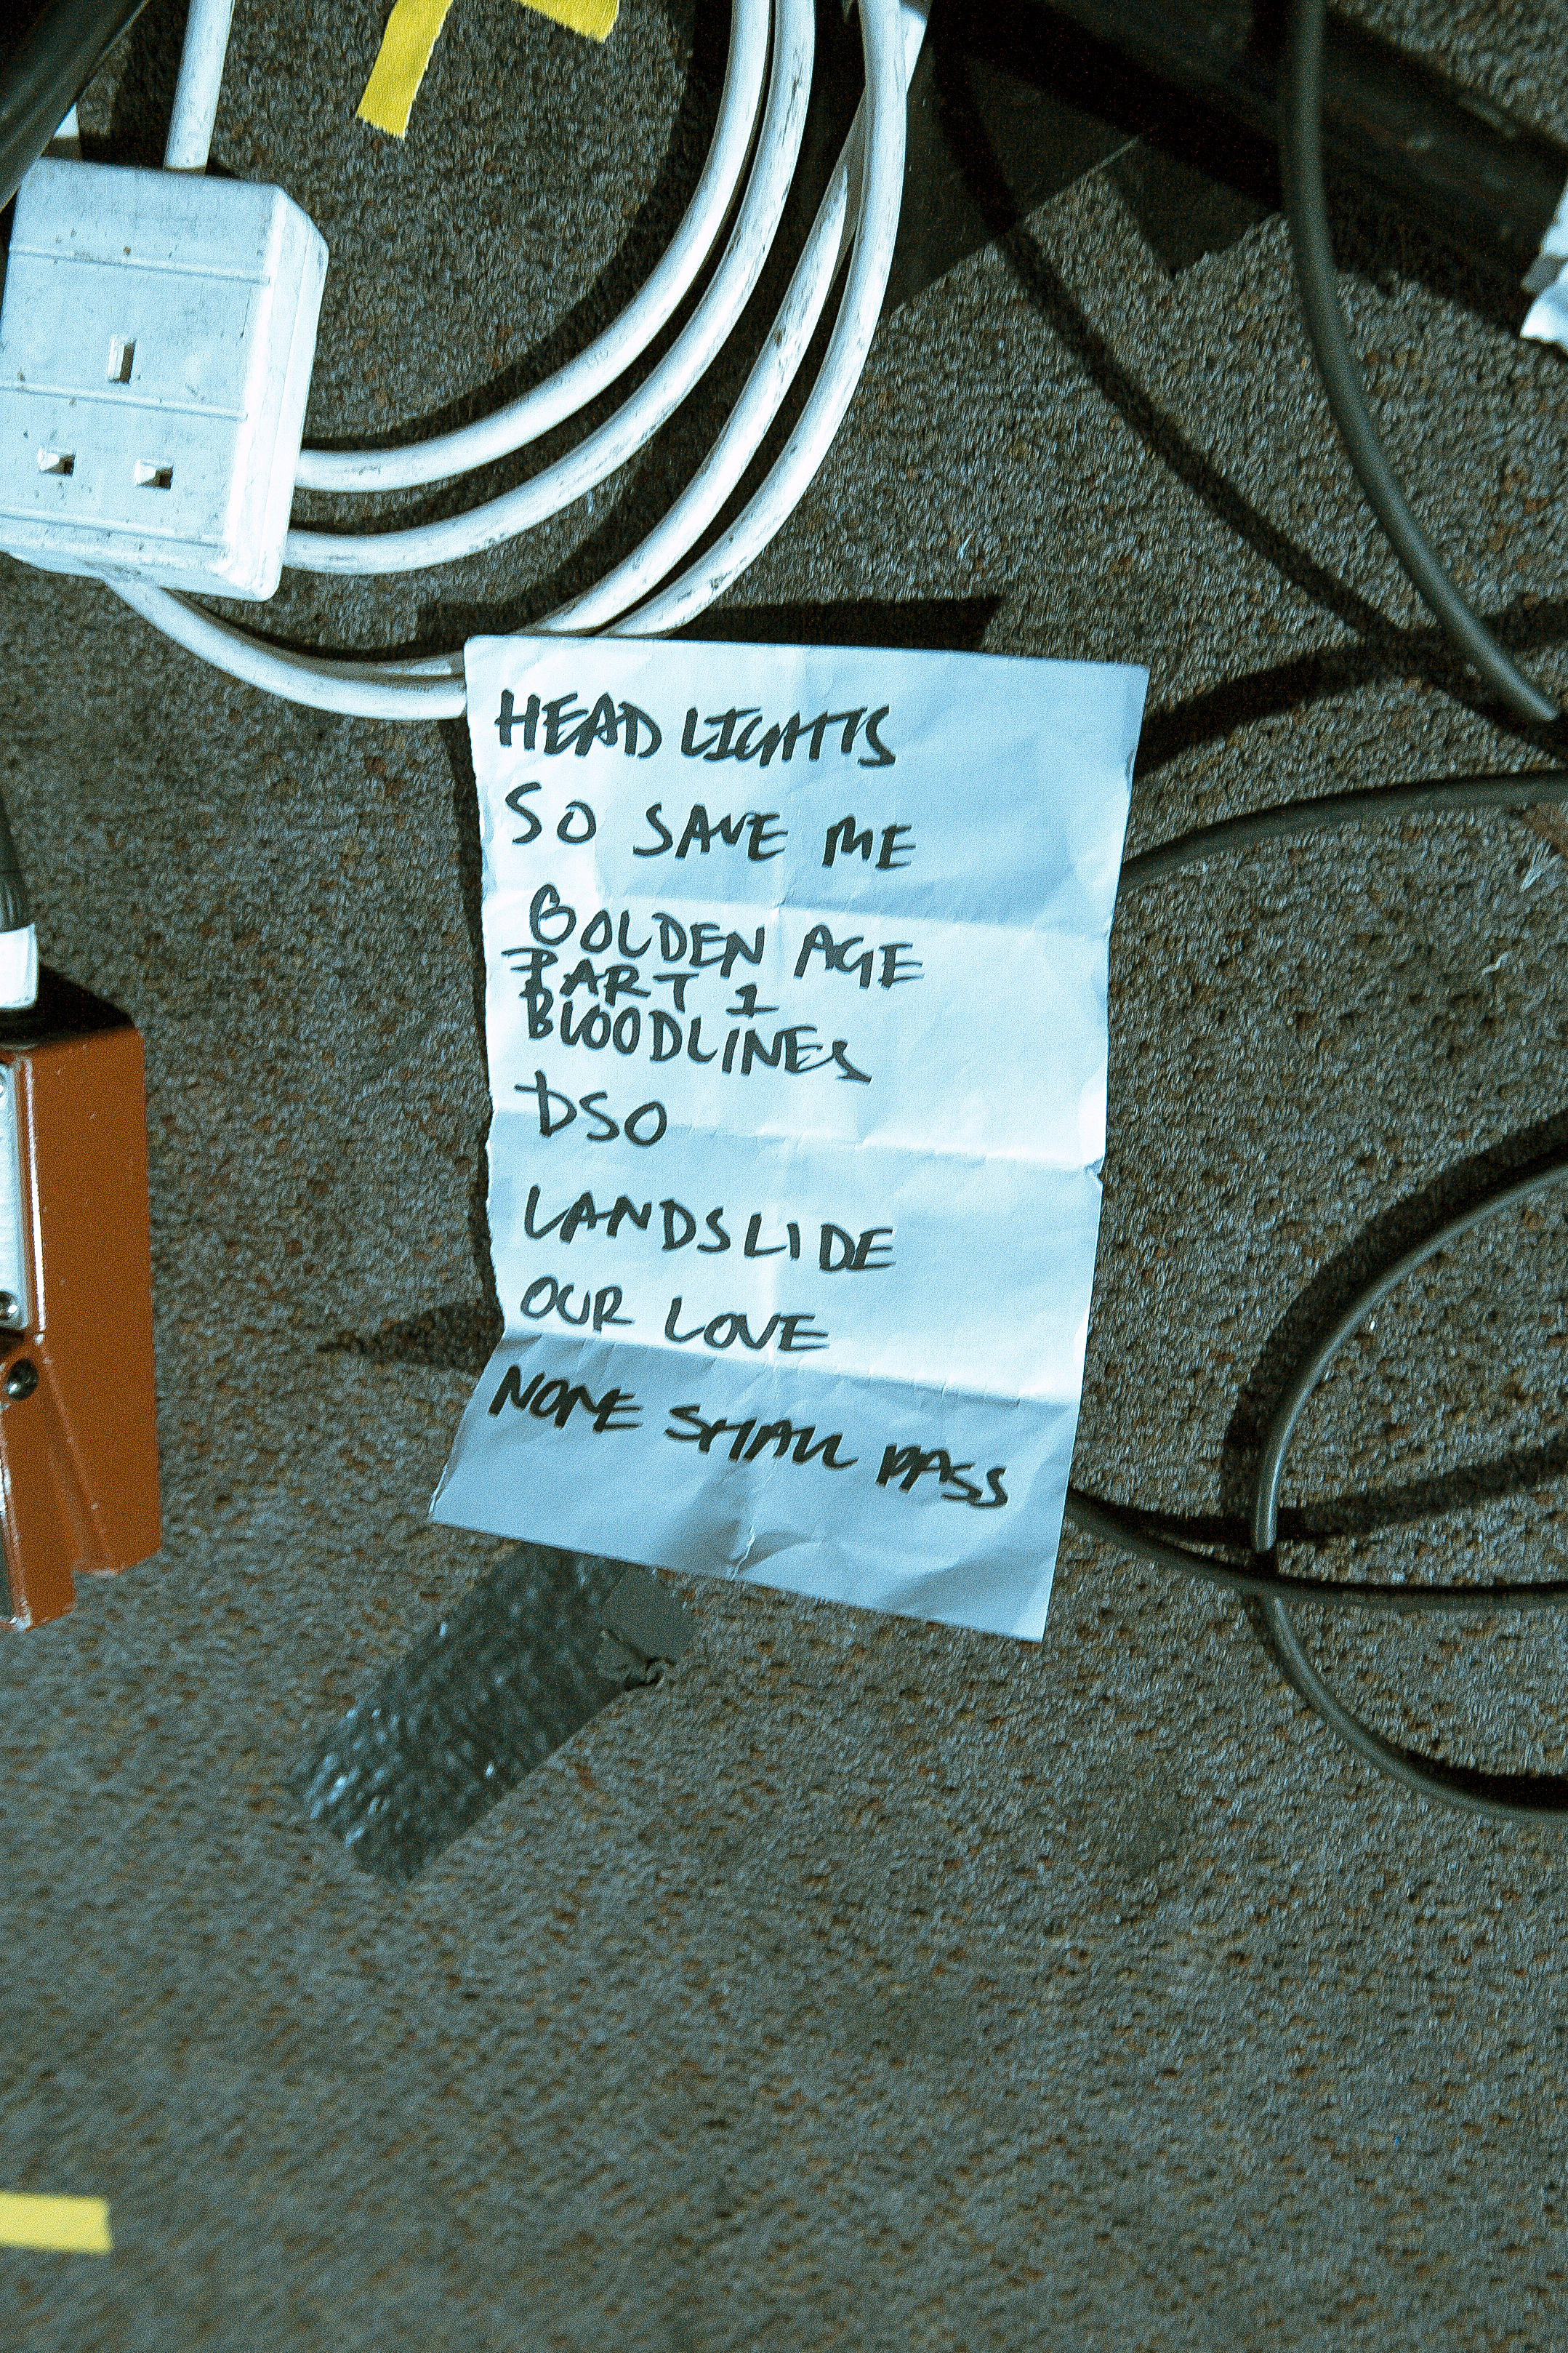 HEADLIGHTS
SO SAVE ME
GOLDEN AGE
PART 1
BLOODLINES
DSO
LANDSLIDE
OUR LOVE
NONE SHALL PASS